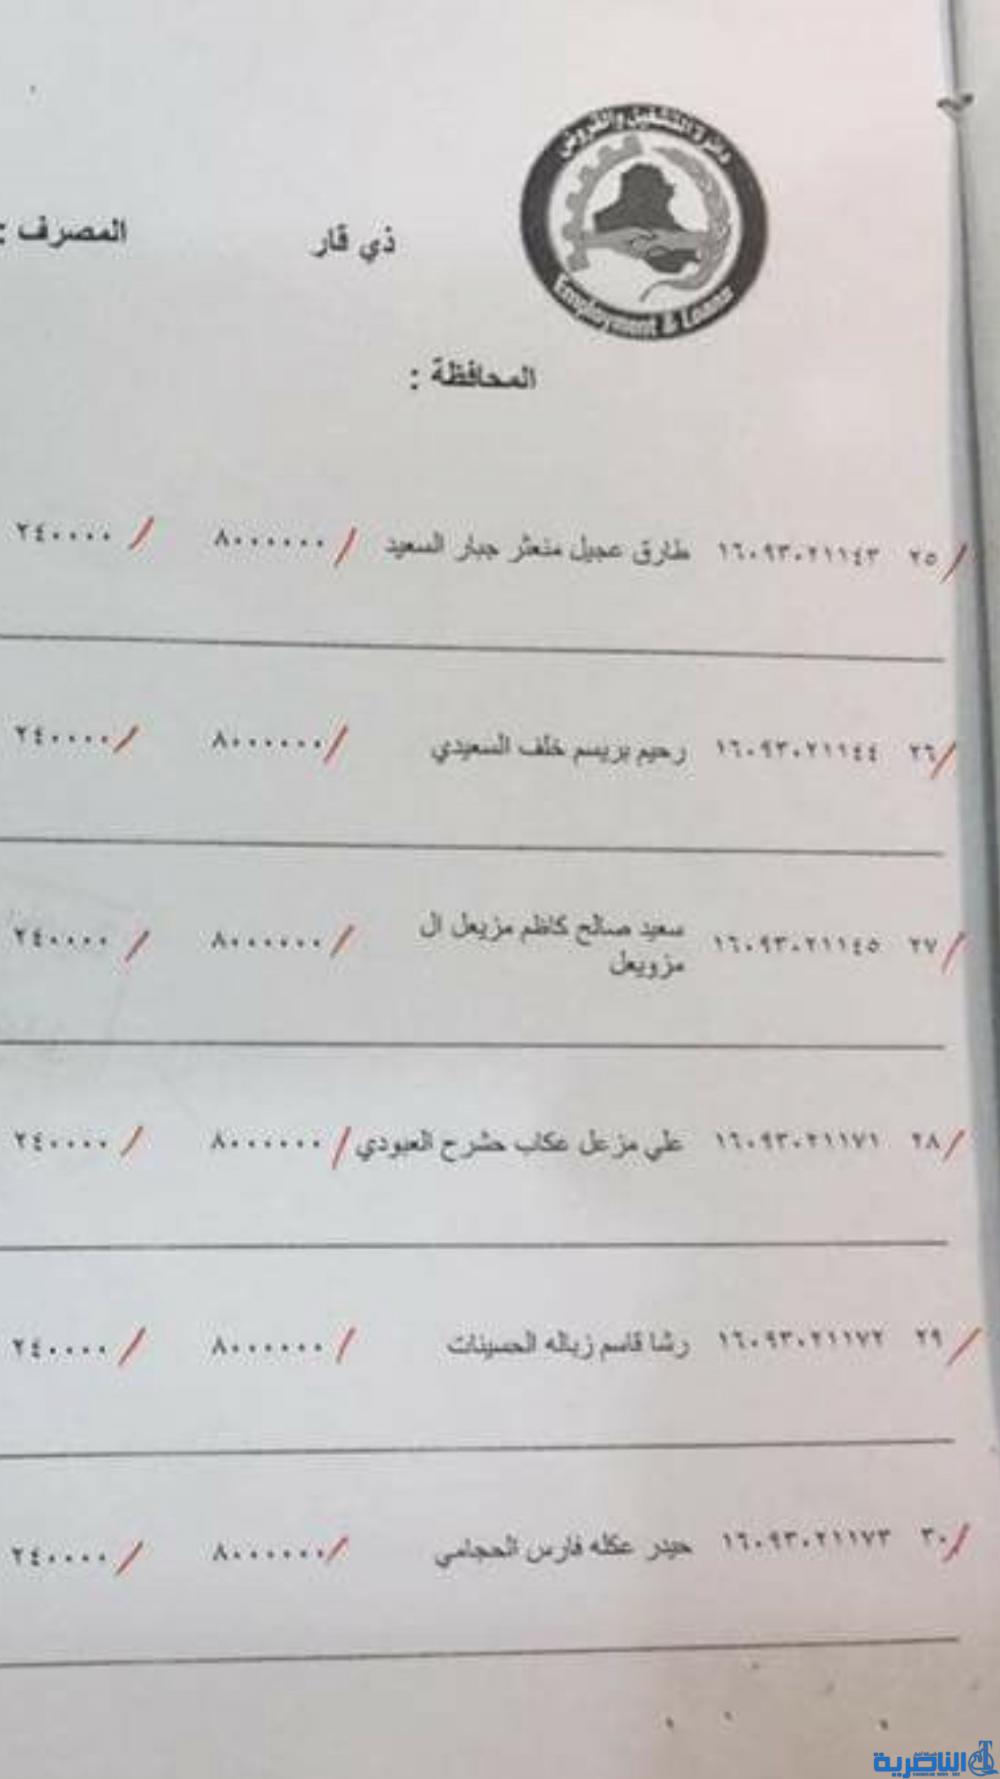 دائرة التشغيل والقروض
Employment & Loans
ذي قار
المصرف :
المحافظة :
٢٥ ١٦٠٩٣٠٢١١٤٣ طارق عجيل منعثر جبار السعيد ٨٠٠٠٠٠٠ ٢٤٠٠٠٠
٢٦ ١٦٠٩٣٠٢١١٤٤ رحيم بريسم خلف السعيدي ٨٠٠٠٠٠٠ ٢٤٠٠٠٠
٢٧ ١٦٠٩٣٠٢١١٤٥ سعيد صالح كاظم مزيعل ال ٨٠٠٠٠٠٠ ٢٤٠٠٠٠
مزويعل
٢٨ ١٦٠٩٣٠٢١١٧١ علي مزعل عكاب حشرح العبودي ٨٠٠٠٠٠٠ ٢٤٠٠٠٠
٢٩ ١٦٠٩٣٠٢١١٧٢ رشا قاسم زباله الحسينات ٨٠٠٠٠٠٠ ٢٤٠٠٠٠
٣٠ ١٦٠٩٣٠٢١١٧٣ حيدر عكله فارس الحجامي ٨٠٠٠٠٠٠ ٢٤٠٠٠٠
الناصرية